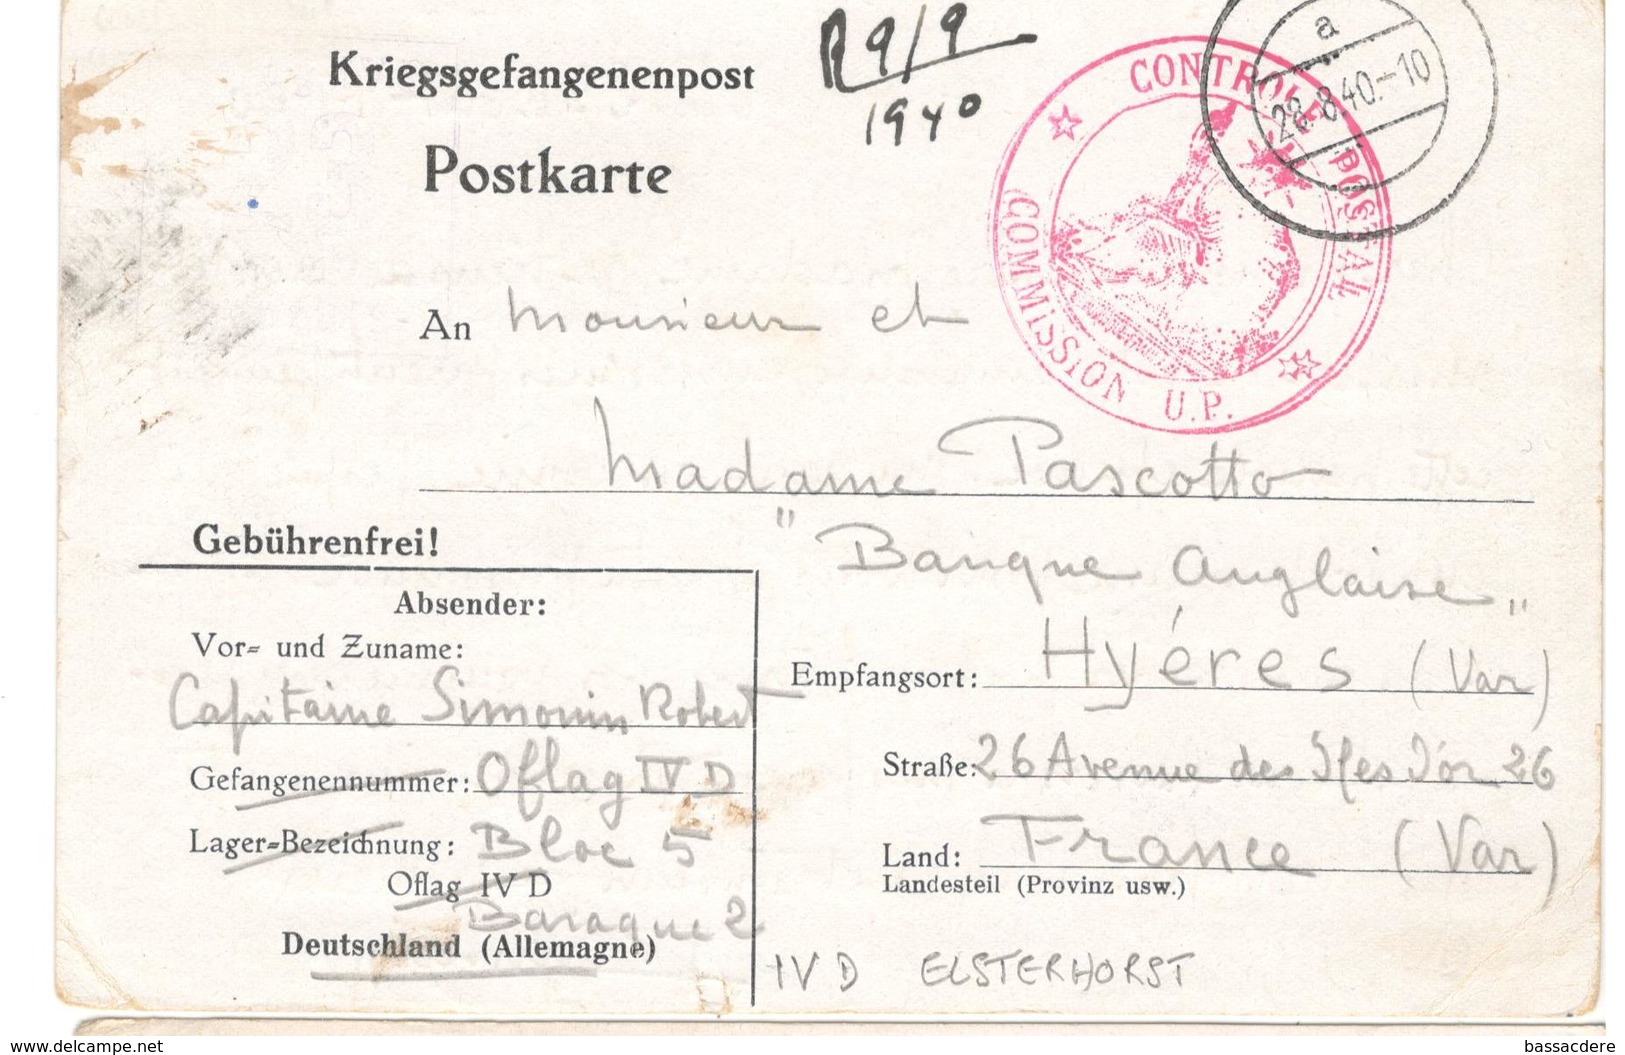 Kriegsgefangenenpost
R 9/9
1940
Postkarte
CONTROLE POSTAL
COMMISSION U.P.
a
28.8.40.-10
An Monsieur et
Madame Pascotto
"Banque Anglaise"
Gebührenfrei!
Absender:
Vor= und Zuname:
Capitaine Simonin Robert
Gefangenennummer: Oflag IV D
Lager=Bezeichnung: Bloc 5
Oflag IV D
Baraque 2
Deutschland (Allemagne)
Empfangsort: Hyéres (Var)
Straße: 26 Avenue des Iles d'or 26
Land: France (Var)
Landesteil (Provinz usw.)
IV D ELSTERHORST
www.delcampe.net
bassacdere